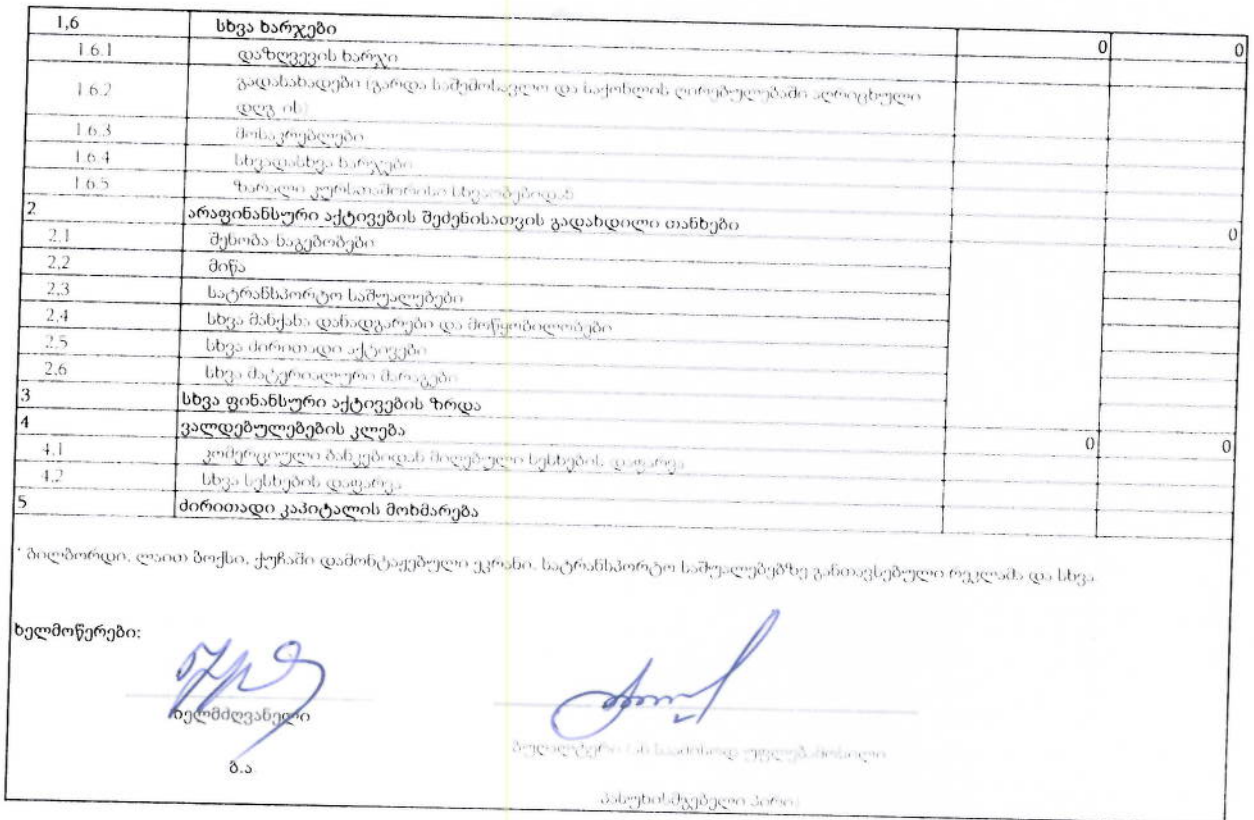 1,6 სხვა ხარჯები 0 0
1.6.1 დაზღვევის ხარჯი
1.6.2 გადასახადები (გარდა საშემოსავლო და საქონლის ღირებულებაში აღრიცხული
დღგ-ის)
1.6.3 მოსაკრებლები
1.6.4 სხვადასხვა ხარჯები
1.6.5 ზარალი კურსთაშორისი სხვაობებიდან
2 არაფინანსური აქტივების შეძენისათვის გადახდილი თანხები 0
2.1 შენობა-ნაგებობები
2,2 მიწა
2,3 სატრანსპორტო საშუალებები
2,4 სხვა მანქანა დანადგარები და მოწყობილობები
2.5 სხვა ძირითადი აქტივები
2,6 სხვა მატერიალური მარაგები
3 სხვა ფინანსური აქტივების ზრდა
4 ვალდებულებების კლება 0 0
4.1 კომერციული ბანკებიდან მიღებული სესხების დაფარვა
4.2 სხვა სესხების დაფარვა
5 ძირითადი კაპიტალის მოხმარება
* ბილბორდი, ლაით ბოქსი, ქუჩაში დამონტაჟებული ეკრანი, სატრანსპორტო საშუალებებზე განთავსებული რეკლამა და სხვა
ხელმოწერები:
ხელმძღვანელი
ბუღალტერი (ან საამისოდ უფლებამოსილი
ბ.ა
პასუხისმგებელი პირი)